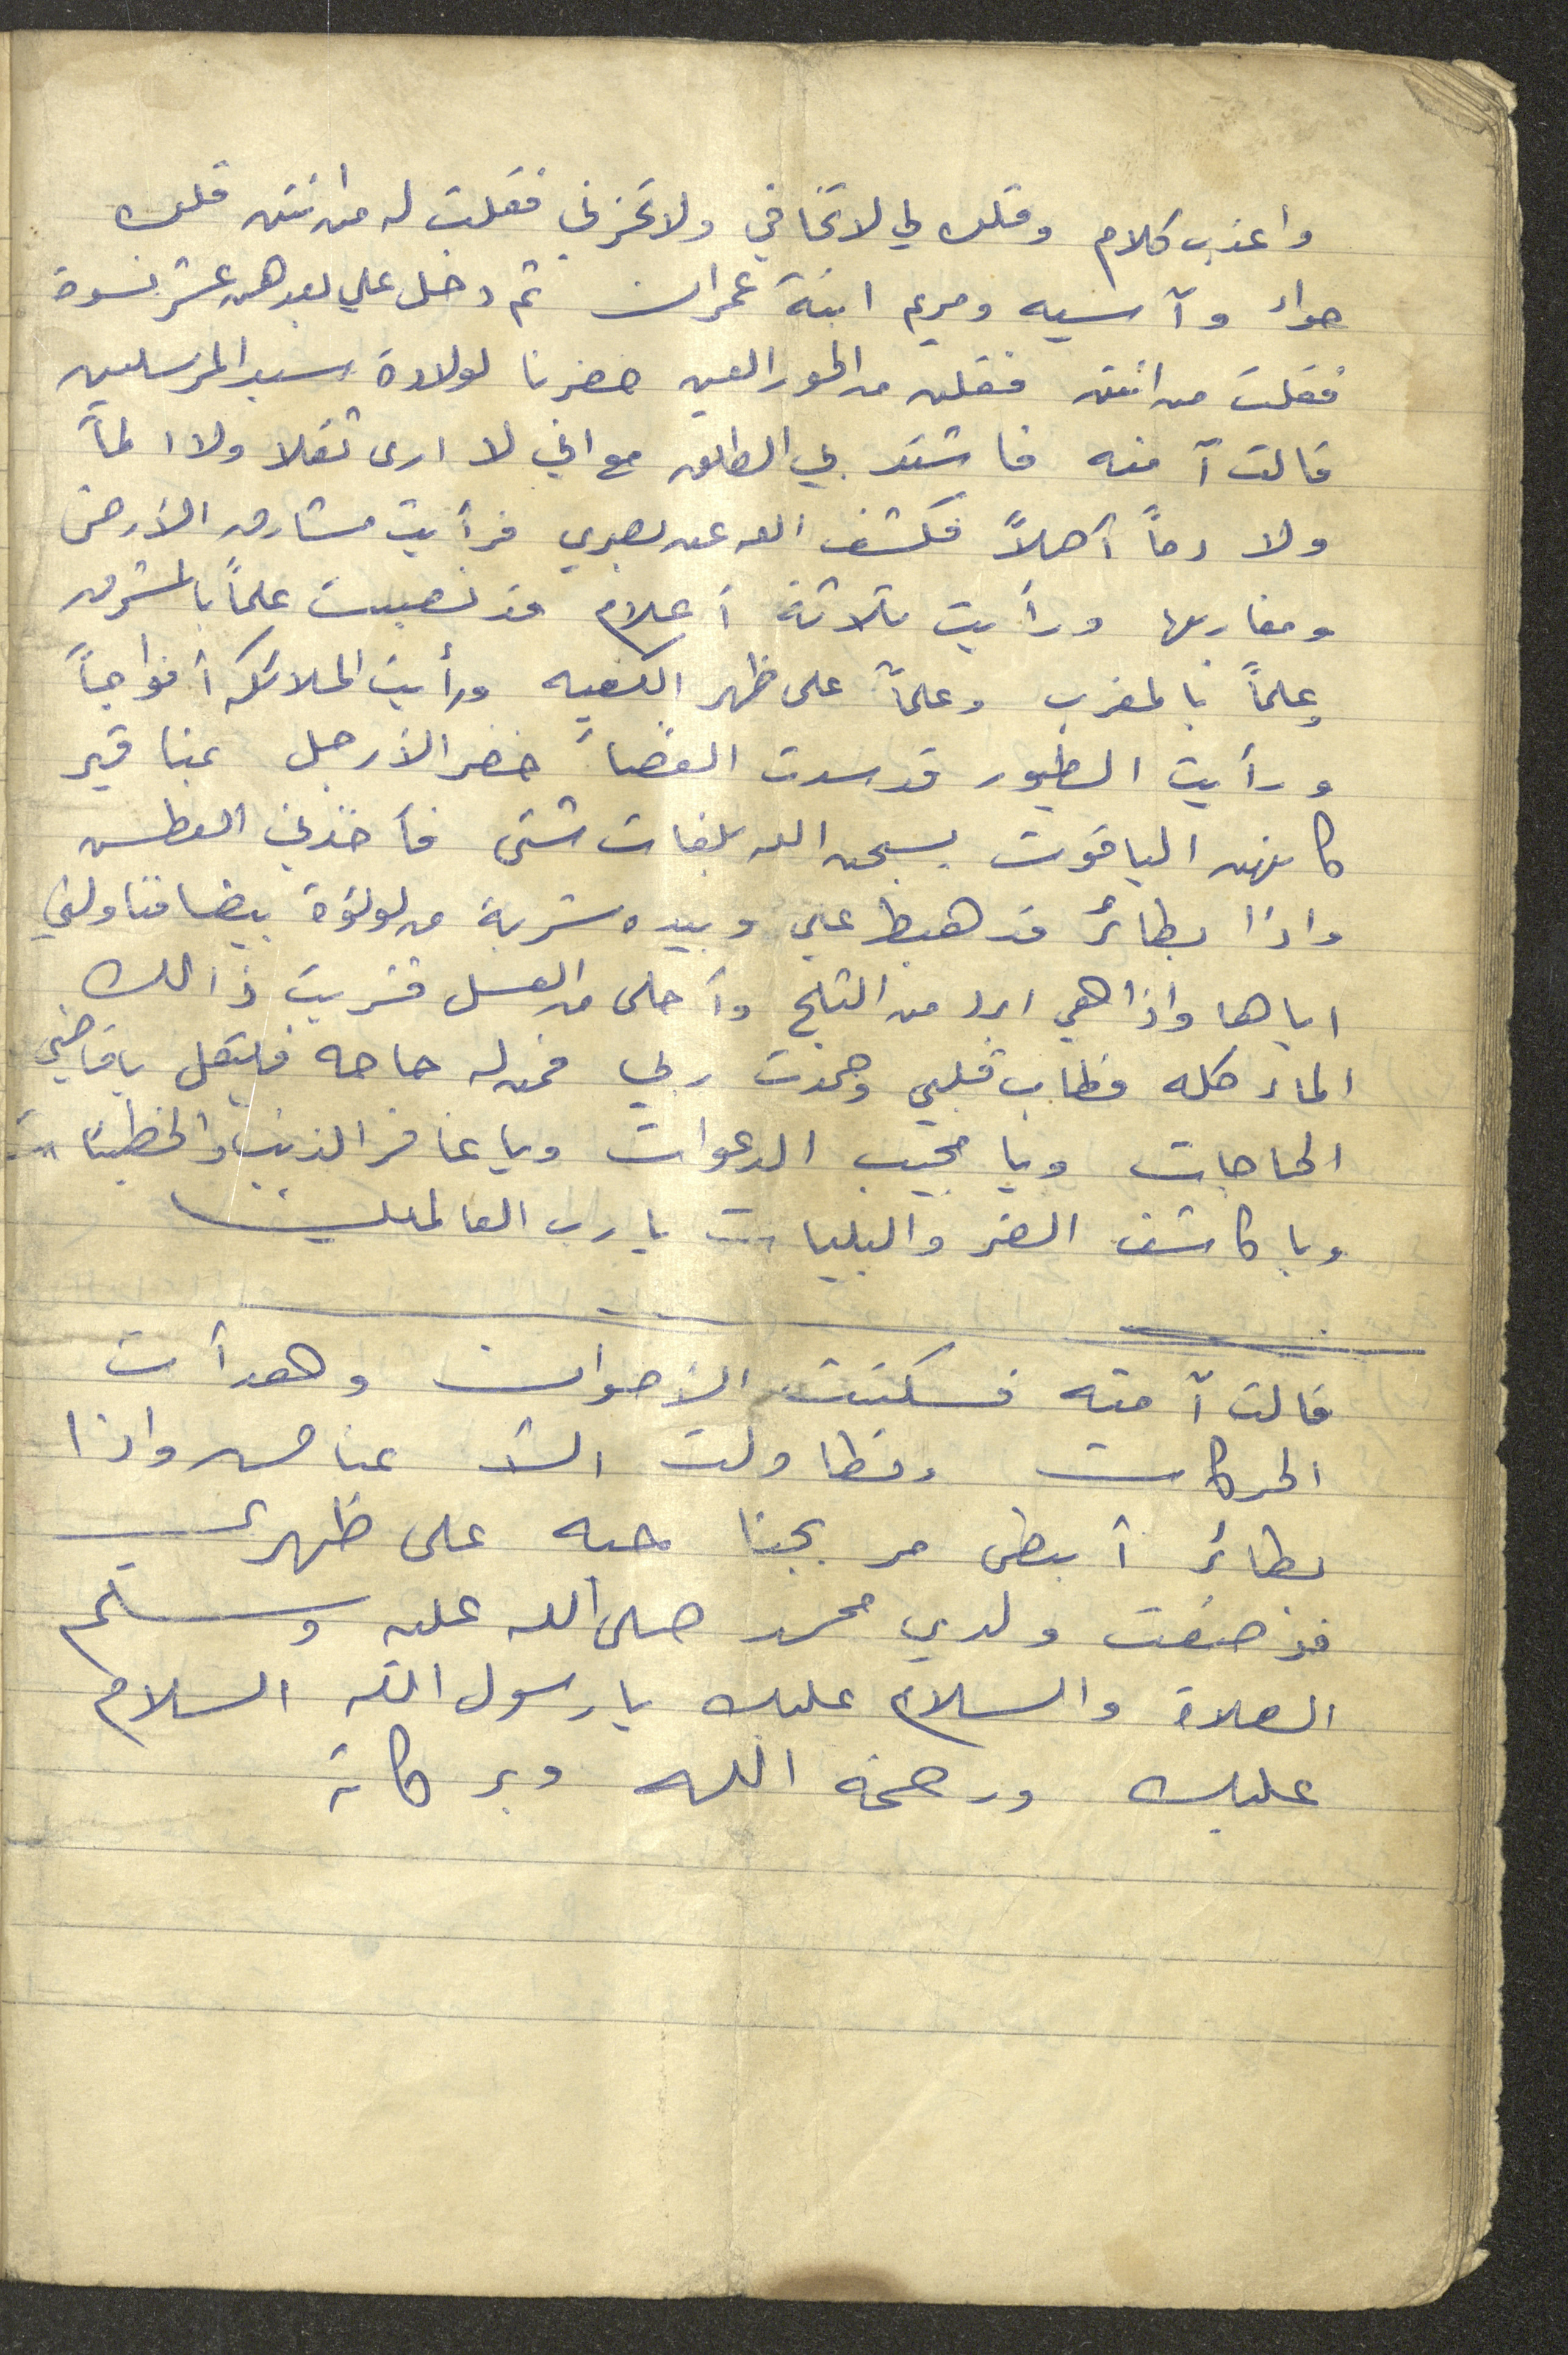 واعذب كلام وقلن لي لا تخافي ولا تحزني فقلت له من انتن قلن
حواء وآسيه ومريم ابنة عمران ثم دخل علي بعدهن عشر نسوة
فقلت من انتن فقلن من الحور العين حضرنا لولادة سيد المرسلين
قالت آمنه فاشتد بي الطلق مع اني لا ارى ثقلا ولا الماً
ولا دماً أصلاً فكشف الله عن بصري فرأيت مشارق الأرض
ومغاربها ورأيت ثلاثة أعلام قد نصبت علماً بالمشرق
وعلماً بالمغرب وعلماً على ظهر الكعبه ورأيت الملائكه أفواجاً
ورأيت الطيور قد سدت الفضاً خضر الأرجل بمناقير
كانهن الياقوت يسبحن الله بلغات شتى فأخذني العطش
واذا بطائر قد هبط علي وبيده شربة من لولؤة بيضا فناولني
اياها واذا هي ابرد من الثلج وأحلى من العسل فشربت ذالك
الماء كله فطاب قلبي وحمدت ربي فمن له حاجه فليقل يا قاضي
الحاجات ويا مجيب الدعوات ويا غافر الذنب والخطيئات
ويا كاشف الضر والبليات يا رب العالمين
قالت آمنه فسكنت الأصوات وهدأت
الحركات وتطاولت الأعناص واذا
بطائر أبيض مر بجناحه على ظهري
فوضعت ولدي محمد صلى الله عليه وسلم
الصلاة والسلام عليك يا رسول الله السلام
عليك ورحمة الله وبركاته